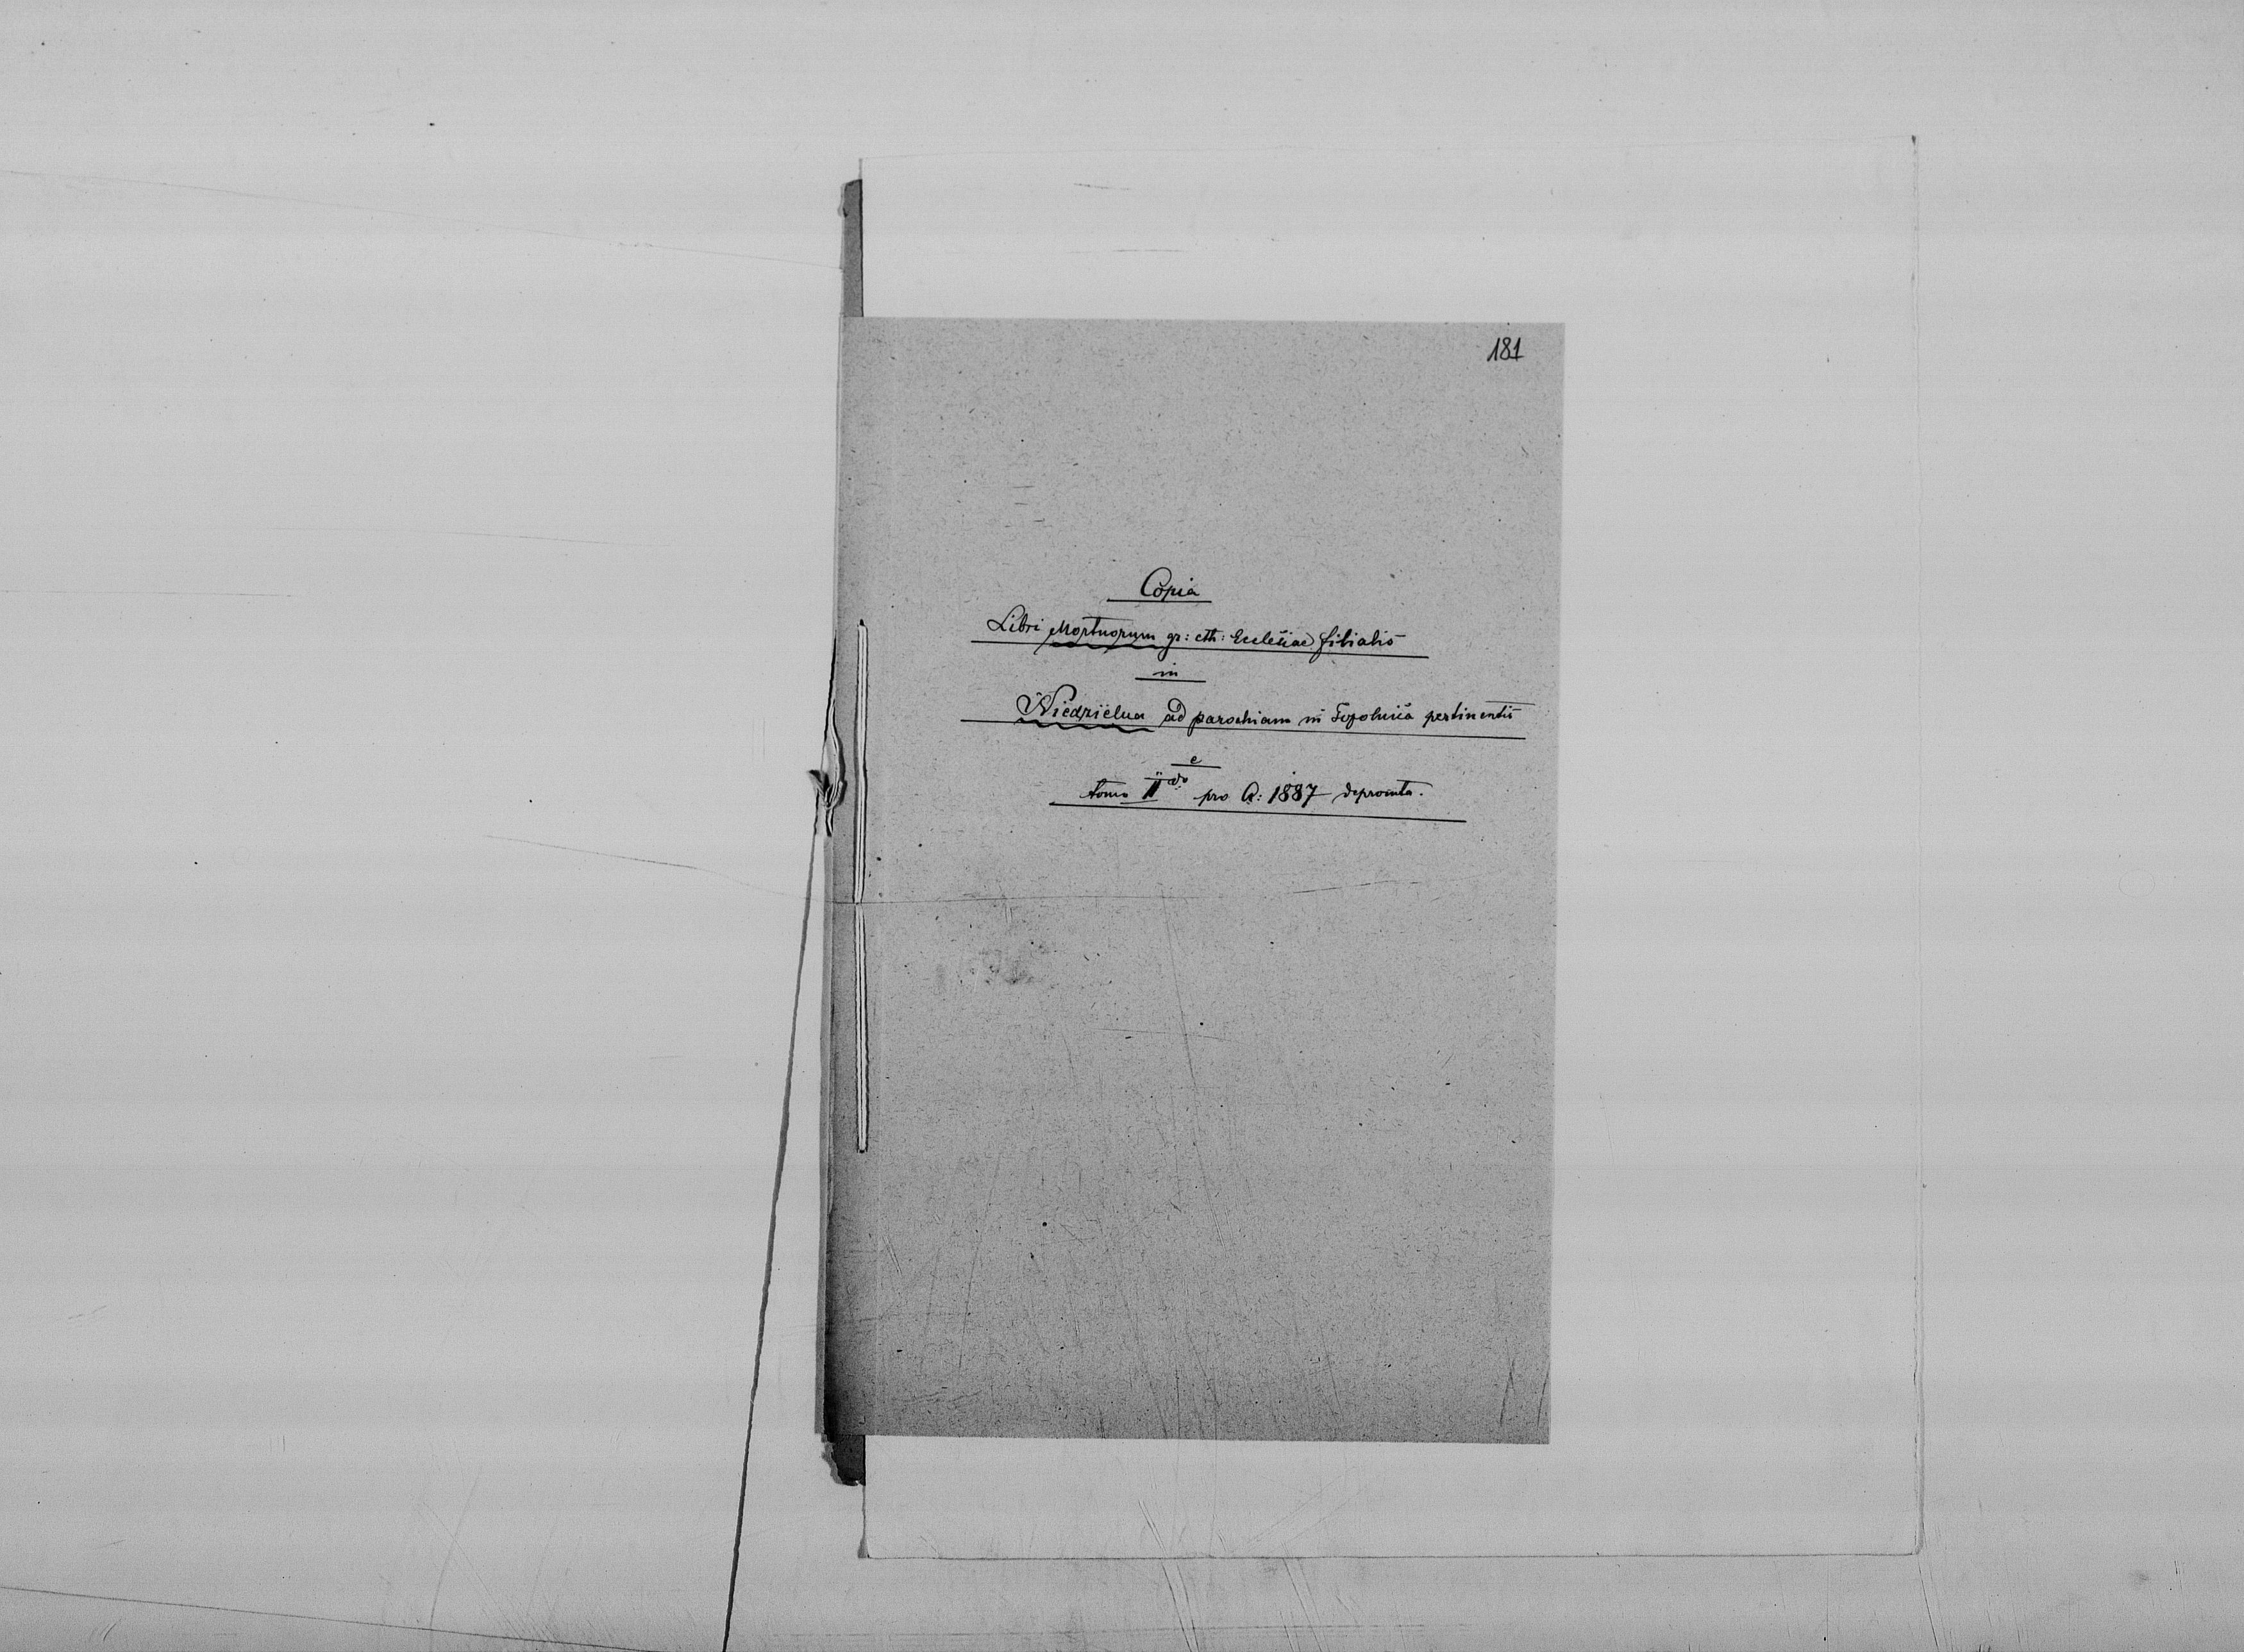 181
Copia
Libri Mortuorum gr: cth: Ecclesiae filialis
in
Niedzielna ad parochiam in Topolnica pertinentis
e
tomo II do pro A: 1887 depromta.